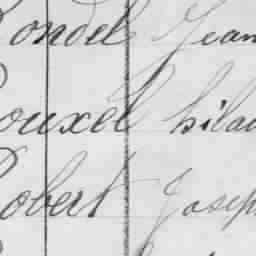 Rondel Jean
Rouxel hilai
Robert Joseph